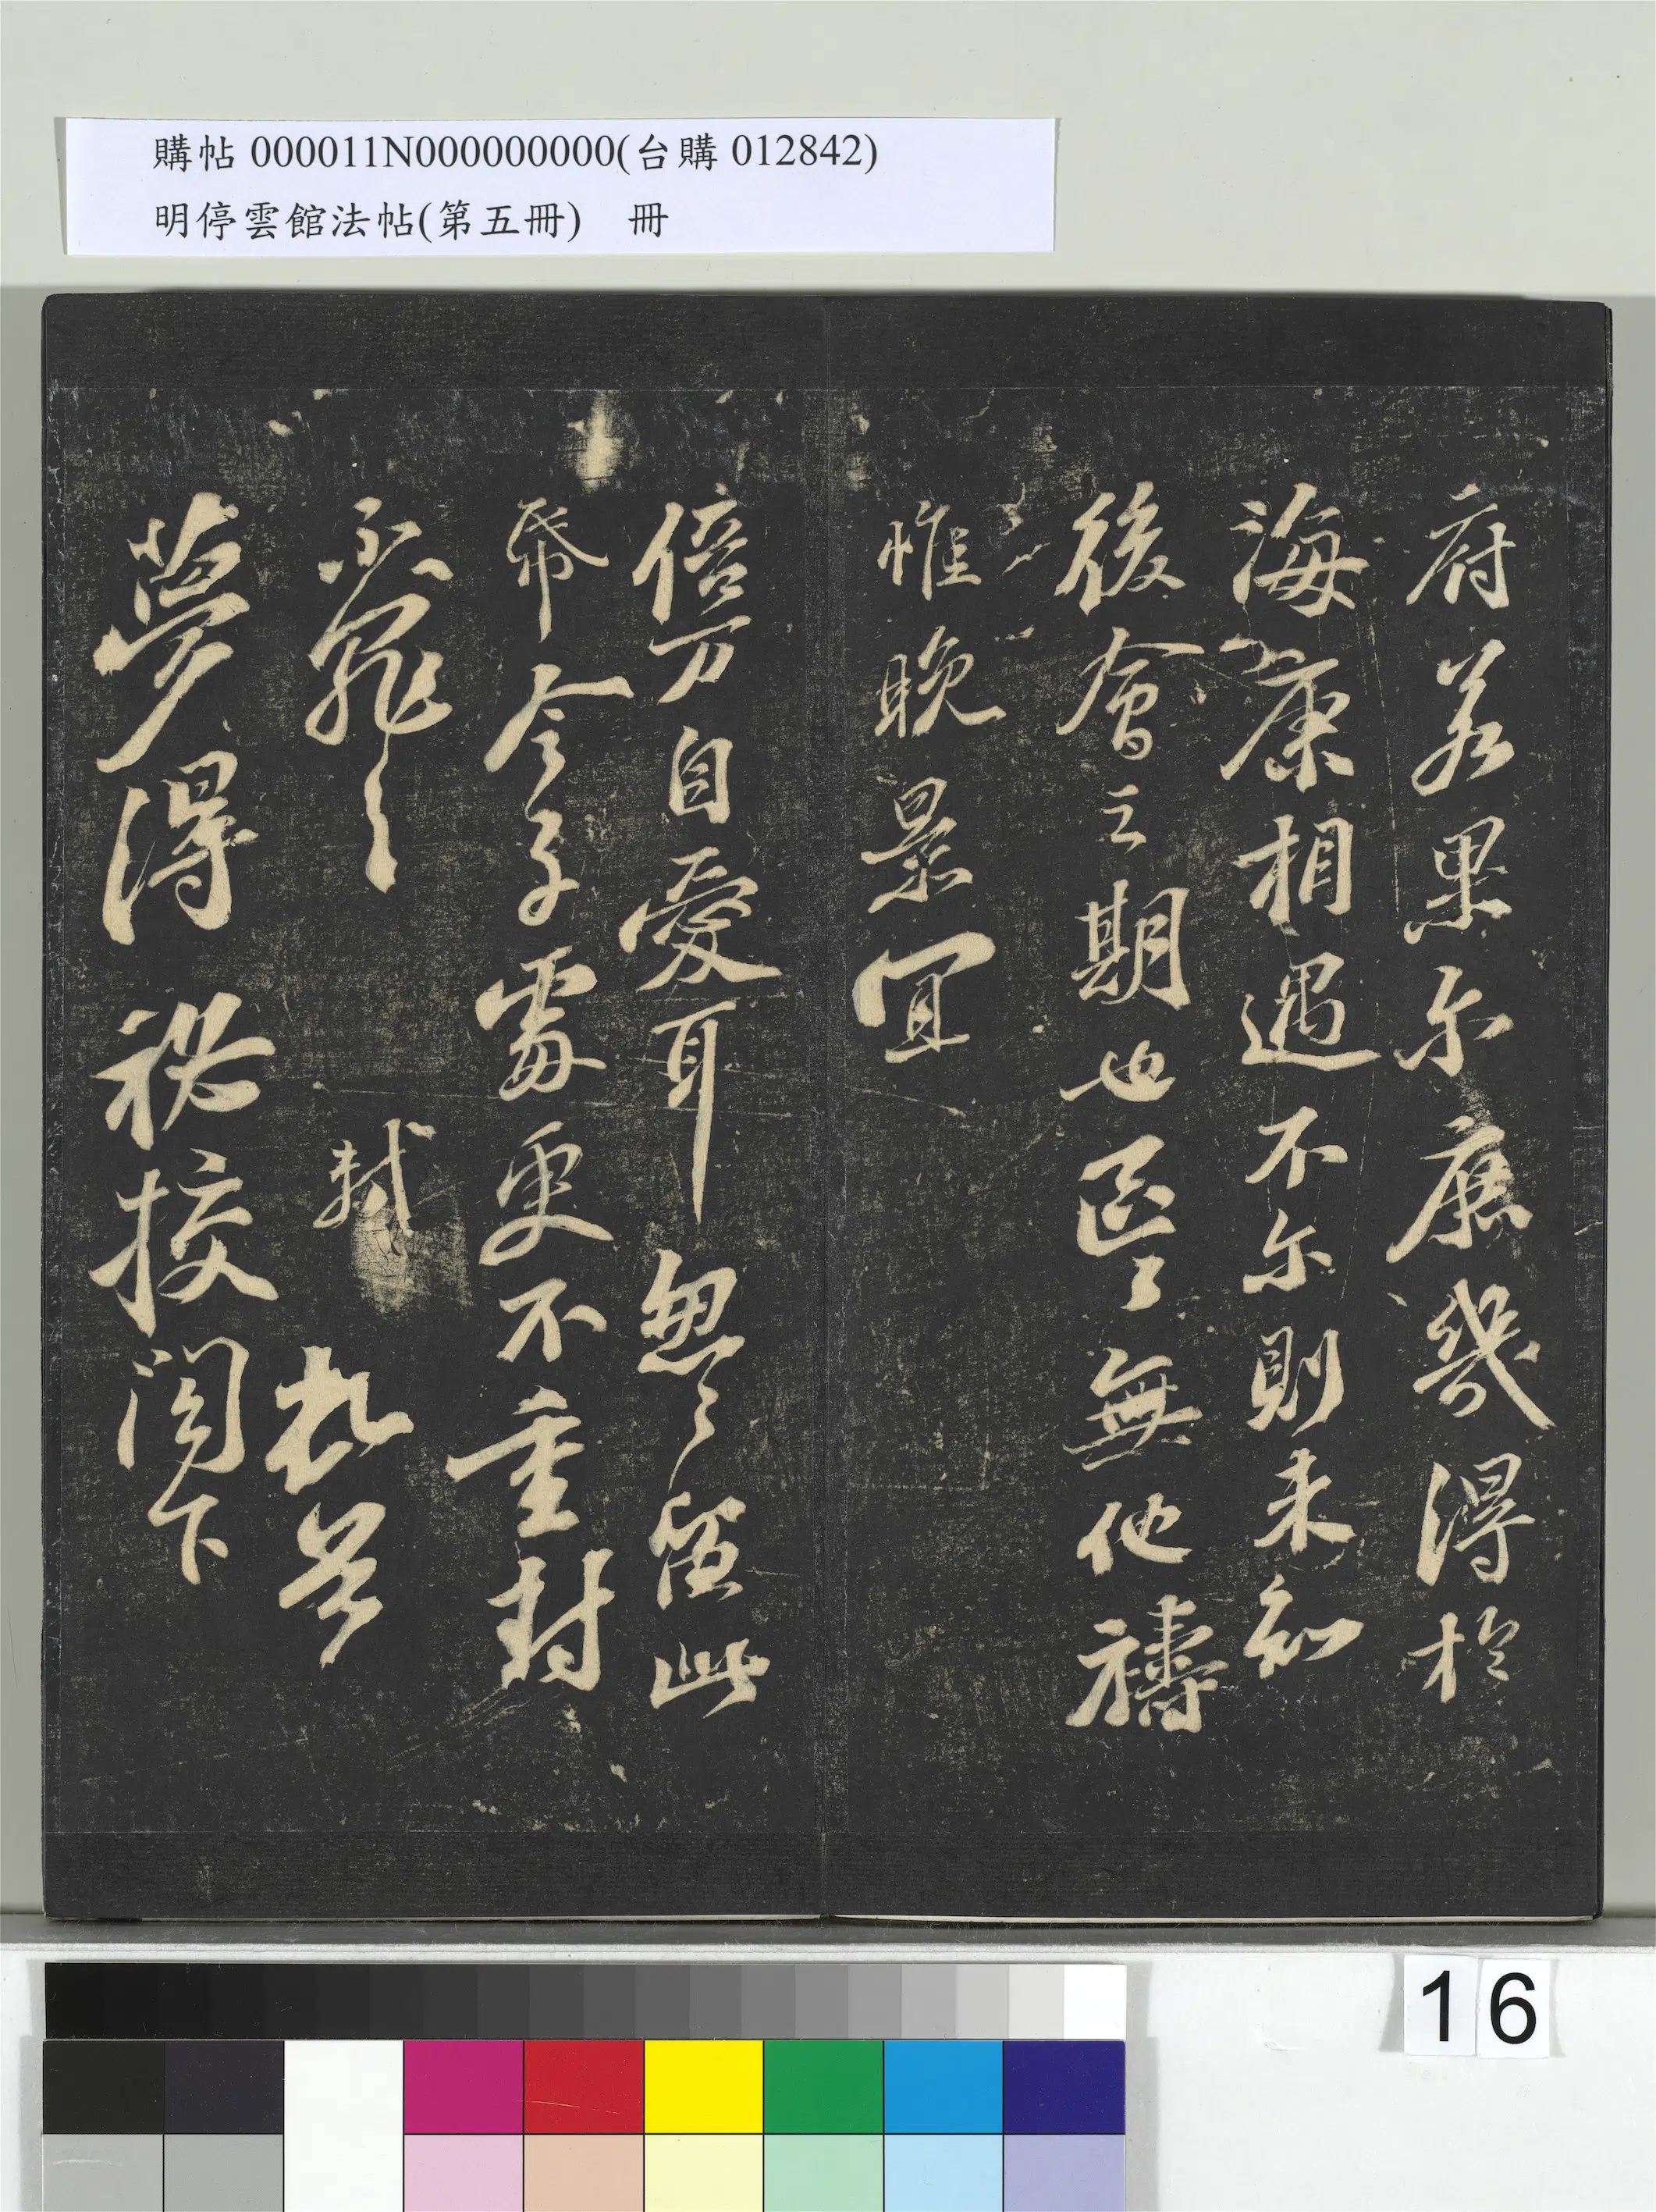 購帖 000011N000000000(台購 012842)
明停雲館法帖(第五冊) 冊
府若果尔庶幾得於
海康相遇不尔則未知
後會之期也區〻無他禱
惟晚景宜
倍万自愛耳怱〻留此
帋令子處更不重封
不罪〻〻 軾 頓首
夢得祕校閣下
16